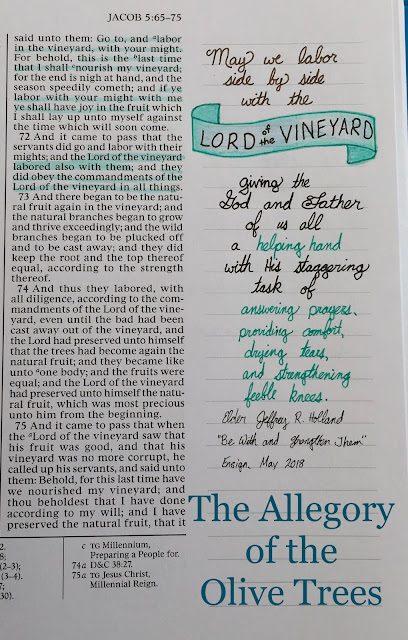 JACOB 5:65–75
said unto them: Go to, and ᵃlabor
in the vineyard, with your might.
For behold, this is the ᵇlast time
that I shall ᶜnourish my vineyard;
for the end is nigh at hand, and the
season speedily cometh; and if ye
labor with your might with me
ye shall have joy in the fruit which
I shall lay up unto myself against
the time which will soon come.
72 And it came to pass that the
servants did go and labor with their
mights; and the Lord of the vineyard
labored also with them; and they
did obey the commandments of the
Lord of the vineyard in all things.
73 And there began to be the natu-
ral fruit again in the vineyard; and
the natural branches began to grow
and thrive exceedingly; and the wild
branches began to be plucked off
and to be cast away; and they did
keep the root and the top thereof
equal, according to the strength
thereof.
74 And thus they labored, with
all diligence, according to the com-
mandments of the Lord of the vine-
yard, even until the bad had been
cast away out of the vineyard, and
the Lord had preserved unto himself
that the trees had become again the
natural fruit; and they became like
unto ᵃone body; and the fruits were
equal; and the Lord of the vineyard
had preserved unto himself the natu-
ral fruit, which was most precious
unto him from the beginning.
75 And it came to pass that when
the ᵃLord of the vineyard saw that
his fruit was good, and that his
vineyard was no more corrupt, he
called up his servants, and said unto
them: Behold, for this last time have
we nourished my vineyard; and
thou beholdest that I have done
according to my will; and I have
preserved the natural fruit, that it
2.
8;
(2–3);
(3–4).
7;
30).
c TG Millennium,
Preparing a People for.
74a D&C 38:27.
75a TG Jesus Christ,
Millennial Reign.
May we labor
side by side
with the
LORD of the VINEYARD
giving the
God and Father
of us all
a helping hand
with His staggering
task of
answering prayers,
providing comfort,
drying tears,
and strengthening
feeble knees.
Elder Jeffrey R. Holland
"Be With and Strengthen Them"
Ensign, May 2018
The Allegory
of the
Olive Trees